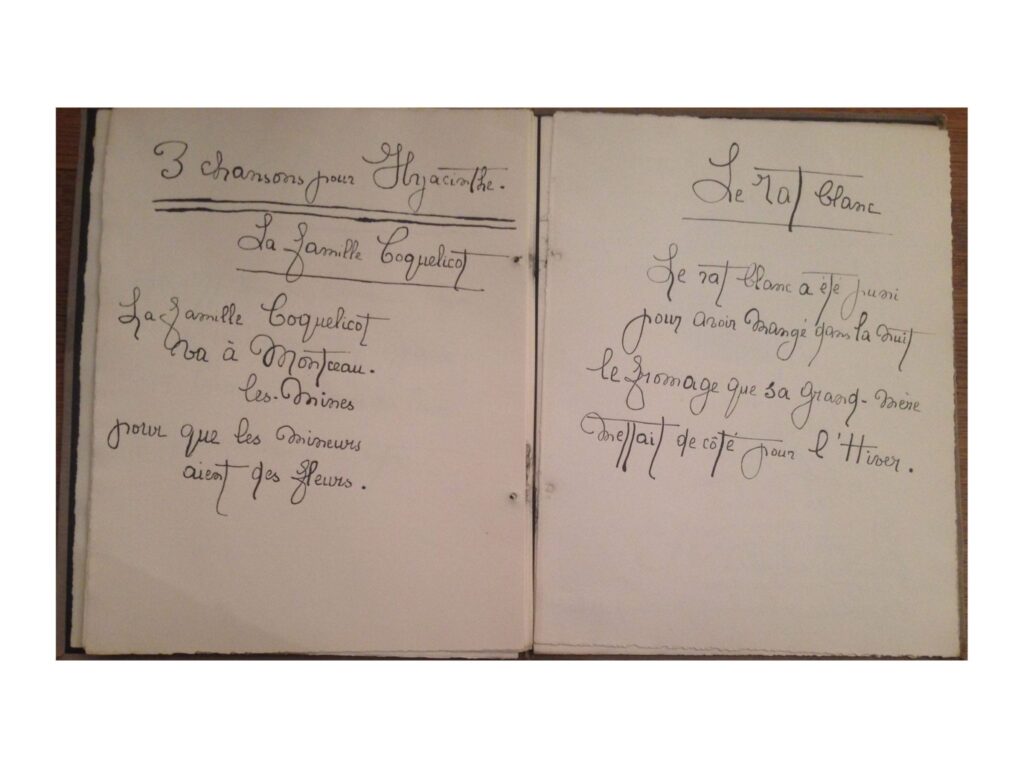 3 chansons pour Hyacinthe.
La famille Coquelicot
La famille Coquelicot
va à Montceau-
les-Mines
pour que les mineurs
aient des fleurs.
Le rat blanc
Le rat blanc a été puni
pour avoir mangé dans la nuit
le fromage que sa grand-mère
mettait de côté pour l'Hiver.